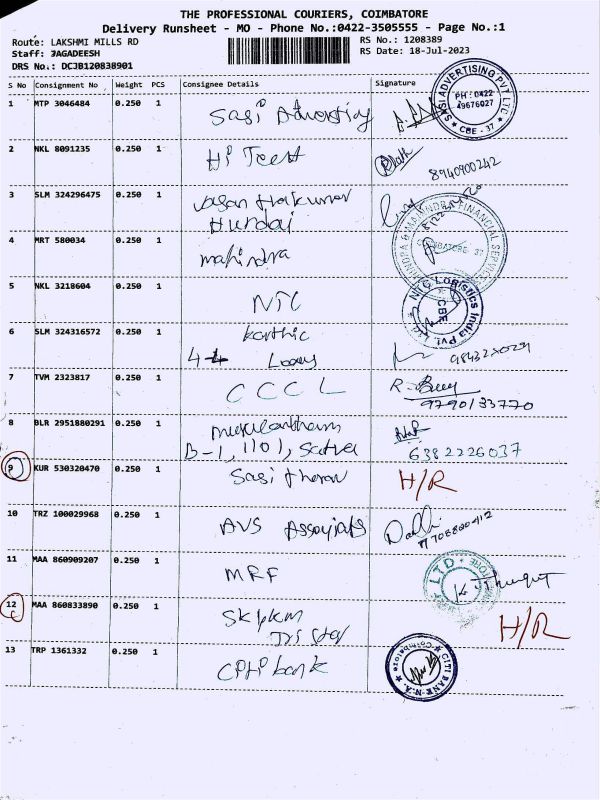 THE PROFESSIONAL COURIERS, COIMBATORE
Delivery Runsheet - MO - Phone No.:0422-3505555 - Page No.:1
Route: LAKSHMI MILLS RD
RS No.: 1208389
Staff: JAGADEESH
RS Date: 18-Jul-2023
DRS No.: DCJB120838901
S No Consignment No Weight PCS Consignee Details Signature
1 MTP 3046484 0.250 1 Sasi Advertising
SASI ADVERTISING PVT LTD
PH : 0422
49676027
CBE - 37
2 NKL 8091235 0.250 1 Hi Teest
8940900242
3 SLM 324296475 0.250 1
Hundai
4 MRT 580034 0.250 1 mahindra
MAHINDRA & MAHINDRA FINANCIAL SERVICES
COIMBATORE - 37
5 NKL 3218604 0.250 1 NTC
NTC Logistics India Pvt. Ltd
CBE
6 SLM 324316572 0.250 1 karthic
7 TVM 2323817 0.250 1 CCCL
9790133770
8 BLR 2951880291 0.250 1
B-1, 1101,
6382226037
9 KUR 530320470 0.250 1 Sasi tharan H/R
10 TRZ 100029968 0.250 1 AVS
7708800412
11 MAA 860909207 0.250 1 MRF
LTD
12 MAA 860833890 0.250 1 H/R
13 TRP 1361332 0.250 1 bank
CITI BANK N.A.
Coimbatore